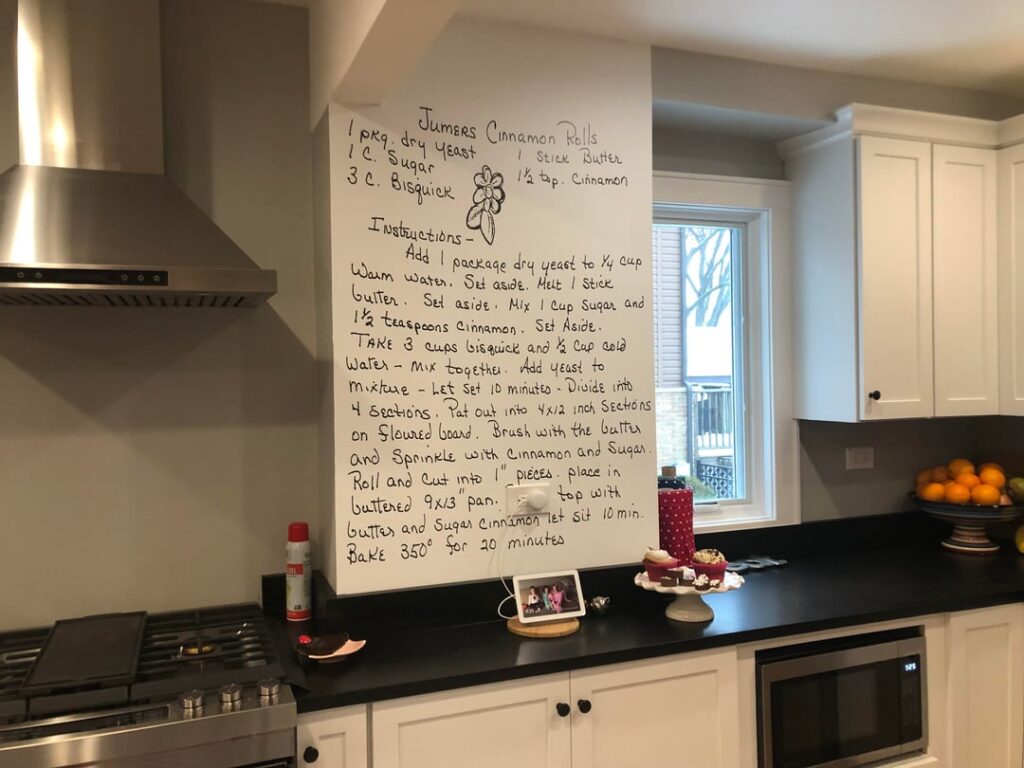 Jumers Cinnamon Rolls
1 pkg. dry yeast
1 C. Sugar
3 C. Bisquick
1 Stick Butter
1½ tsp. Cinnamon
Instructions -
Add 1 package dry yeast to ¼ cup
Warm water. Set aside. Melt 1 stick
butter. Set aside. Mix 1 cup Sugar and
1½ teaspoons cinnamon. Set Aside.
TAKE 3 cups bisquick and ½ cup cold
water - mix together. Add yeast to
mixture - Let set 10 minutes - Divide into
4 sections. Pat out into 4x12 inch sections
on floured board. Brush with the butter
and Sprinkle with Cinnamon and Sugar.
Roll and Cut into 1" pieces. place in
buttered 9x13" pan. top with
butter and Sugar cinnamon let sit 10 min.
Bake 350° for 20 minutes
OIL